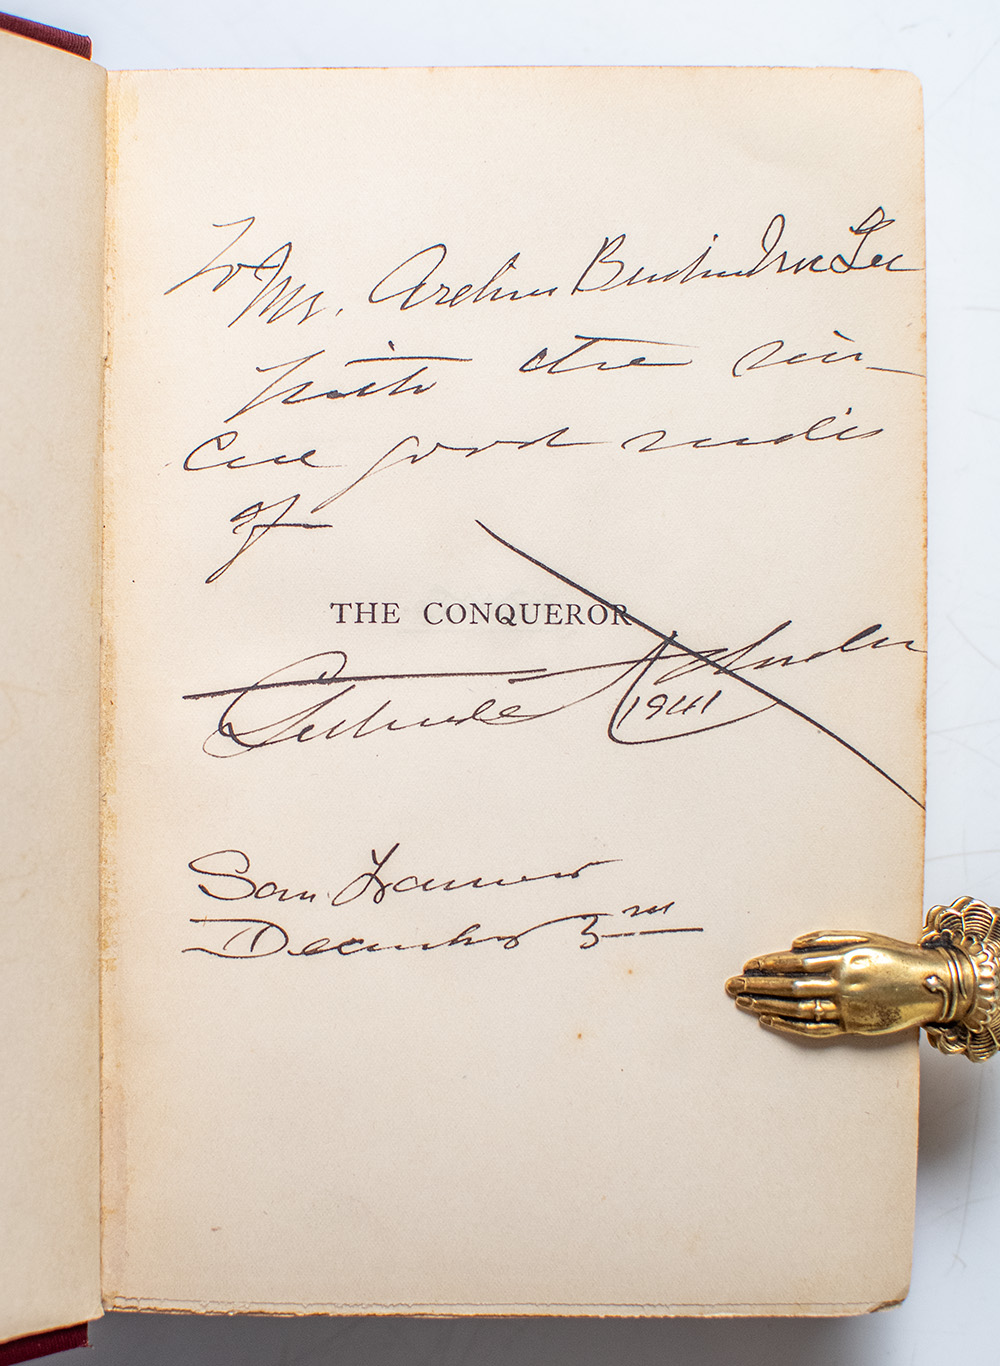 To Mr. Arthur Lee
With the sin-
cere good wishes
of
THE CONQUEROR
Gertrude Atherton
1941
San Francisco
December 3rd